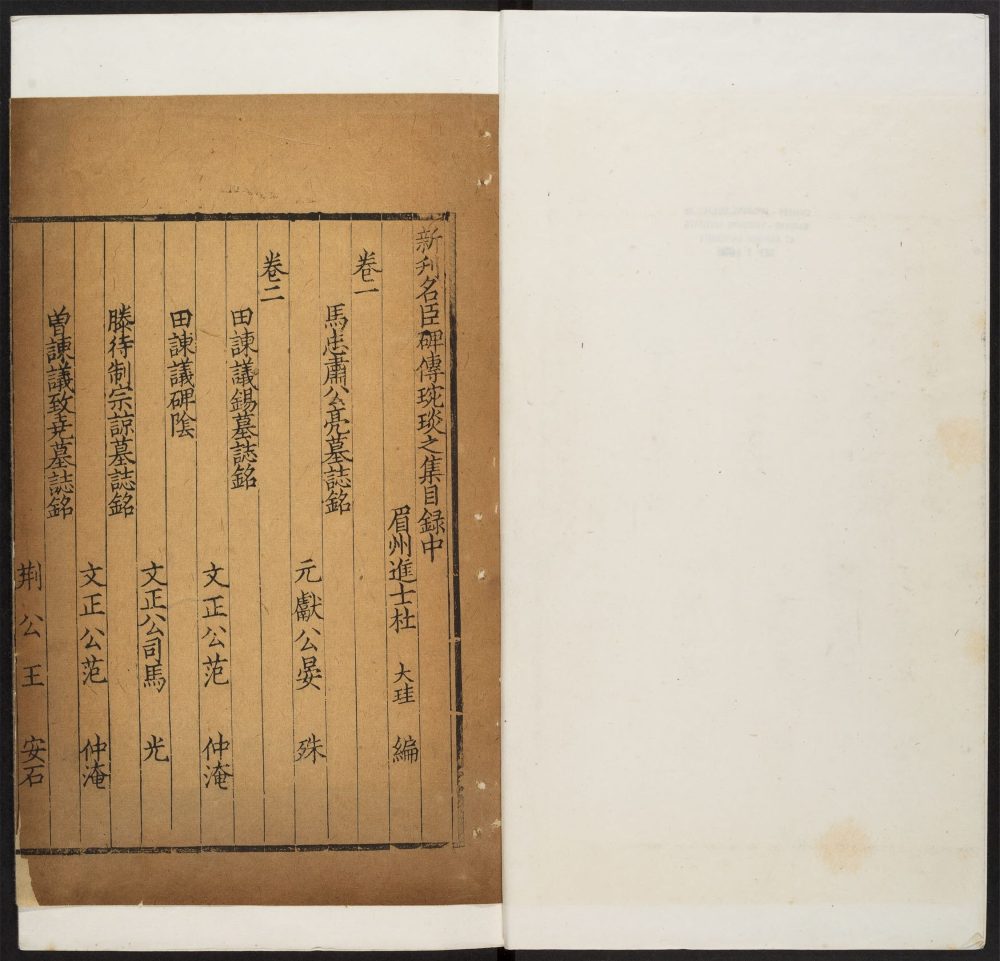 新刋名臣碑傳琬琰之集目録中
眉州進士杜 大珪 編
卷一
馬忠肅公亮墓誌銘
元獻公晏 殊
卷二
田諫議錫墓誌銘
文正公范 仲淹
田諫議碑隂
文正公司馬 光
滕待制宗諒墓誌銘
文正公范 仲淹
曽諫議致堯墓誌銘
荆公王 安石